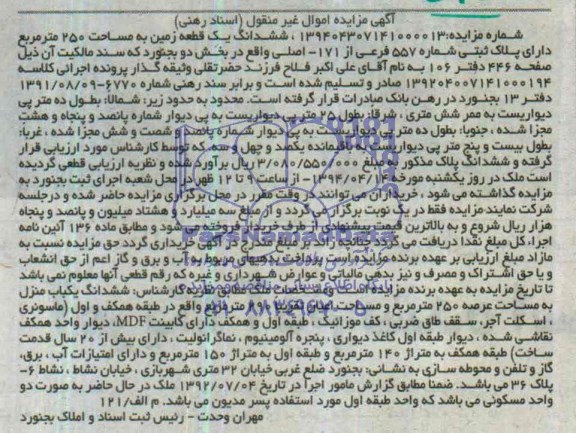 آگهی مزایده اموال غیر منقول (اسناد رهنی)
شماره مزایده: ۱۳۹۴۰۴۳۰۷۱۴۱۰۰۰۰۱۳ ، ششدانگ یک قطعه زمین به مساحت ۲۵۰ مترمربع
دارای پلاک ثبتی شماره ۵۵۷ فرعی از ۱۷۱- اصلی واقع در بخش دو بجنورد که سند مالکیت آن ذیل
صفحه ۴۴۶ دفتر ۱۰۶ به نام آقای علی اکبر فلاح فرزند حضرتقلی وثیقه گذار پرونده اجرائی کلاسه
۱۳۹۲۰۴۰۰۷۱۴۱۰۰۰۱۹۴ صادر و تسلیم شده است و برابر سند رهنی شماره ۶۷۷۰-۱۳۹۱/۰۸/۰۹
دفتر ۱۳ بجنورد در رهن بانک صادرات قرار گرفته است. محدود به حدود زیر: شمالا: بطول ده متر پی
دیواریست به ممر شش متری ، شرقا: بطول ۲۵ متر پی دیواریست به پی دیوار شماره پانصد و پنجاه و هشت
مجزا شده ، جنوبا: بطول ده متر پی دیواریست به پی دیوار شماره پانصد و شصت و شش مجزا شده ، غربا:
بطول بیست و پنج متر پی دیواریست به باقیمانده یکصد و چهل و سه، که توسط کارشناس مورد ارزیابی قرار
گرفته و ششدانگ پلاک مذکور به مبلغ ۳/۰۸۰/۵۵۰/۰۰۰ ریال برآورد شده و نظریه ارزیابی قطعی گردیده
است ملک در روز یکشنبه مورخه ۱۳۹۴/۰۴/۱۴ - از ساعت ۹ تا ۱۲ ظهر در محل شعبه اجرای ثبت بجنورد به
مزایده گذاشته می شود ، خریداران می توانند در وقت مقرر در محل برگزاری مزایده حاضر شده و درجلسه
شرکت نمایند مزایده فقط در یک نوبت برگزار می گردد و از مبلغ سه میلیارد و هشتاد میلیون و پانصد و پنجاه
هزار ریال شروع و به بالاترین قیمت پیشنهادی از طرف خریدار فروخته می شود و مطابق ماده ۱۳۶ آئین نامه
اجرا، کل مبلغ نقدا دریافت می گردد چنانچه زائد بر مبلغ مندرج در آگهی خریداری گردد حق مزایده نسبت به
مازاد مبلغ ارزیابی بر عهده برنده مزایده است پرداخت بدهیهای مربوط به آب و برق و گاز اعم از حق انشعاب
و یا حق اشتراک و مصرف و نیز بدهی مالیاتی و عوارض شهرداری و غیره که رقم قطعی آنها معلوم نمی باشد
تا تاریخ مزایده به عهده برنده مزایده است وضعیت و مشخصات ملک مطابق نظریه کارشناس: ششدانگ یکباب منزل
به مساحت عرصه ۲۵۰ مترمربع و مساحت اعیان مترمربع واقع در طبقه همکف و اول (ماسونری
، اسکلت آجر، سقف طاق ضربی ، کف موزائیک ، طبقه اول و همکف دارای کابینت MDF، دیوار واحد همکف
نقاشی شده ، دیوار طبقه اول کاغذ دیواری ، پنجره آلومینیوم ، نماگرانولیت ، دارای بیش از ۲۰ سال قدمت
ساخت) طبقه همکف به متراژ ۱۴۰ مترمربع و طبقه اول به متراژ ۱۵۰ مترمربع و دارای امتیازات آب ، برق،
گاز و تلفن و محوطه سازی به نشانی: بجنورد ضلع غربی خیابان ۳۲ متری شهربازی ، خیابان نشاط ، نشاط ۶-
پلاک ۳۶ می باشد. ضمنا مطابق گزارش مامور اجرا در تاریخ ۱۳۹۲/۰۷/۰۴ ملک در حال حاضر به صورت دو
واحد مسکونی می باشد که واحد طبقه اول مورد استفاده پسر مدیون می باشد. م الف/۱۲۱
مهران وحدت - رئیس ثبت اسناد و املاک بجنورد
۰۲۱-۸۸۳۴۹۶۷۰-۵